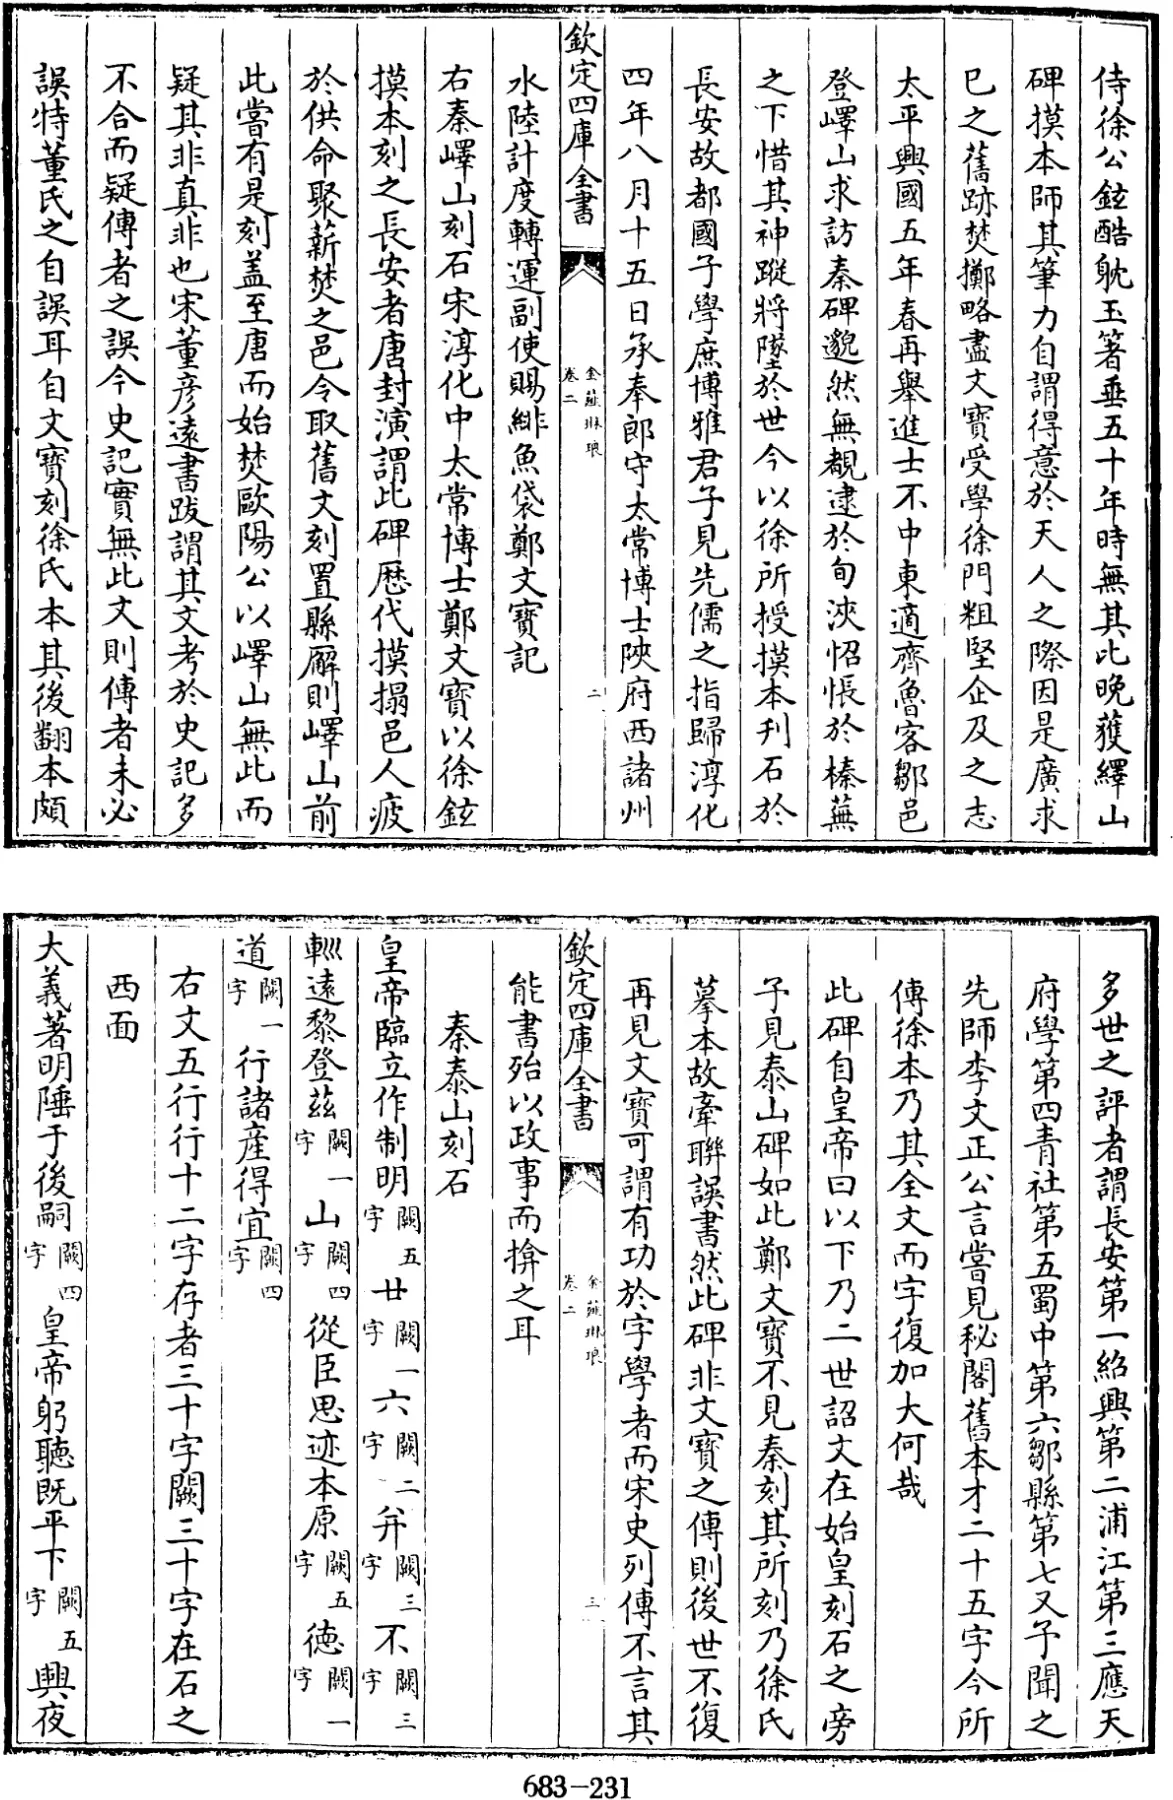 侍徐公鉉酷躭玉箸垂五十年時無其比晚獲繹山
碑摸本師其筆力自謂得意於天人之際因是廣求
已之舊跡焚擲略盡文寶受學徐門粗堅企及之志
太平興國五年春再舉進士不中東適齊魯客鄒邑
登嶧山求訪秦碑邈然無覩逮於旬浹怊悵於榛蕪
之下惜其神蹤將墜於世今以徐所授摸本刋石於
長安故都國子學庶博雅君子見先儒之指歸淳化
四年八月十五日承奉郎守太常博士陝府西諸州
欽定四庫全書
金薤琳琅
卷二
二
水陸計度轉運副使賜緋魚袋鄭文寶記
右秦嶧山刻石宋淳化中太常博士鄭文寶以徐鉉
摸本刻之長安者唐封演謂此碑歴代摸搨邑人疲
於供命聚薪焚之邑令取舊文刻置縣廨則嶧山前
此嘗有是刻盖至唐而始焚歐陽公以嶧山無此而
疑其非真非也宋董彦逺書跋謂其文考於史記多
不合而疑傳者之誤今史記實無此文則傳者未必
誤特董氏之自誤耳自文寶刻徐氏本其後翻本頗
多世之評者謂長安第一紹興第二浦江第三應天
府學第四青社第五蜀中第六鄒縣第七又予聞之
先師李文正公言嘗見秘閣舊本才二十五字今所
傳徐本乃其全文而字復加大何哉
此碑自皇帝曰以下乃二世詔文在始皇刻石之旁
予見泰山碑如此鄭文寶不見秦刻其所刻乃徐氏
摹本故牽聨誤書然此碑非文寶之傳則後世不復
再見文寶可謂有功於字學者而宋史列傳不言其
欽定四庫全書
金薤琳琅
卷二
三
能書殆以政事而揜之耳
秦泰山刻石
皇帝臨立作制明闕五字廿闕一字六闕二字并闕三字不闕三字
輙逺黎登茲闕一字山闕四字從臣思迹本原闕五字德闕一字
道闕一字行諸產得宜闕四字
右文五行行十二字存者三十字闕三十字在石之
西面
大義著明陲于後嗣闕四字皇帝躬聽既平下闕五字興夜
683-231